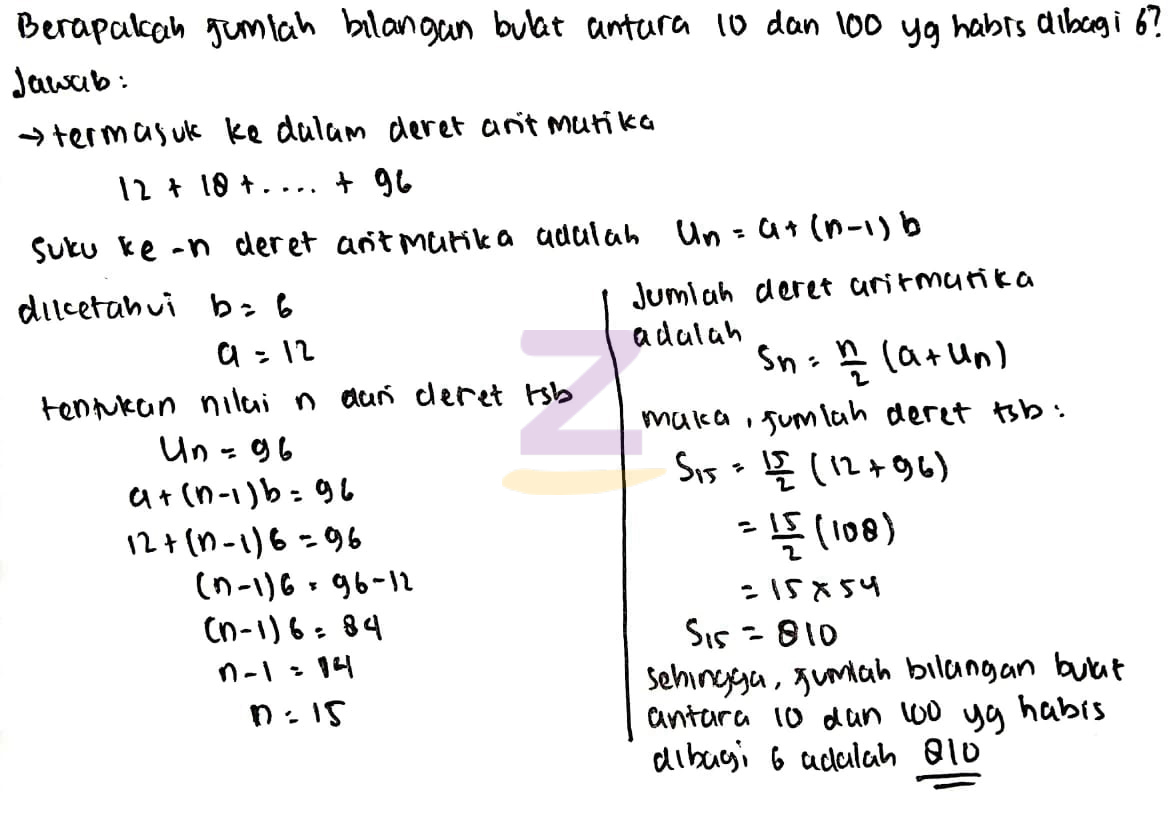 Berapakah jumlah bilangan bulat antara 10 dan 100 yg habis dibagi 6?
Jawab :
→ termasuk ke dalam deret aritmatika
12 + 18 + .... + 96
Suku ke -n deret aritmatika adalah Un = a + (n-1) b
diketahui b = 6
a = 12
tentukan nilai n dari deret tsb
Un = 96
a + (n-1)b = 96
12 + (n-1)6 = 96
(n-1)6 = 96-12
(n-1)6 = 84
n-1 = 14
n = 15
Jumlah deret aritmatika
adalah
Sn = n/2 (a + Un)
maka, jumlah deret tsb :
S15 = 15/2 (12 + 96)
= 15/2 (108)
= 15 x 54
S15 = 810
sehingga, jumlah bilangan bulat
antara 10 dan 100 yg habis
dibagi 6 adalah 810
Z